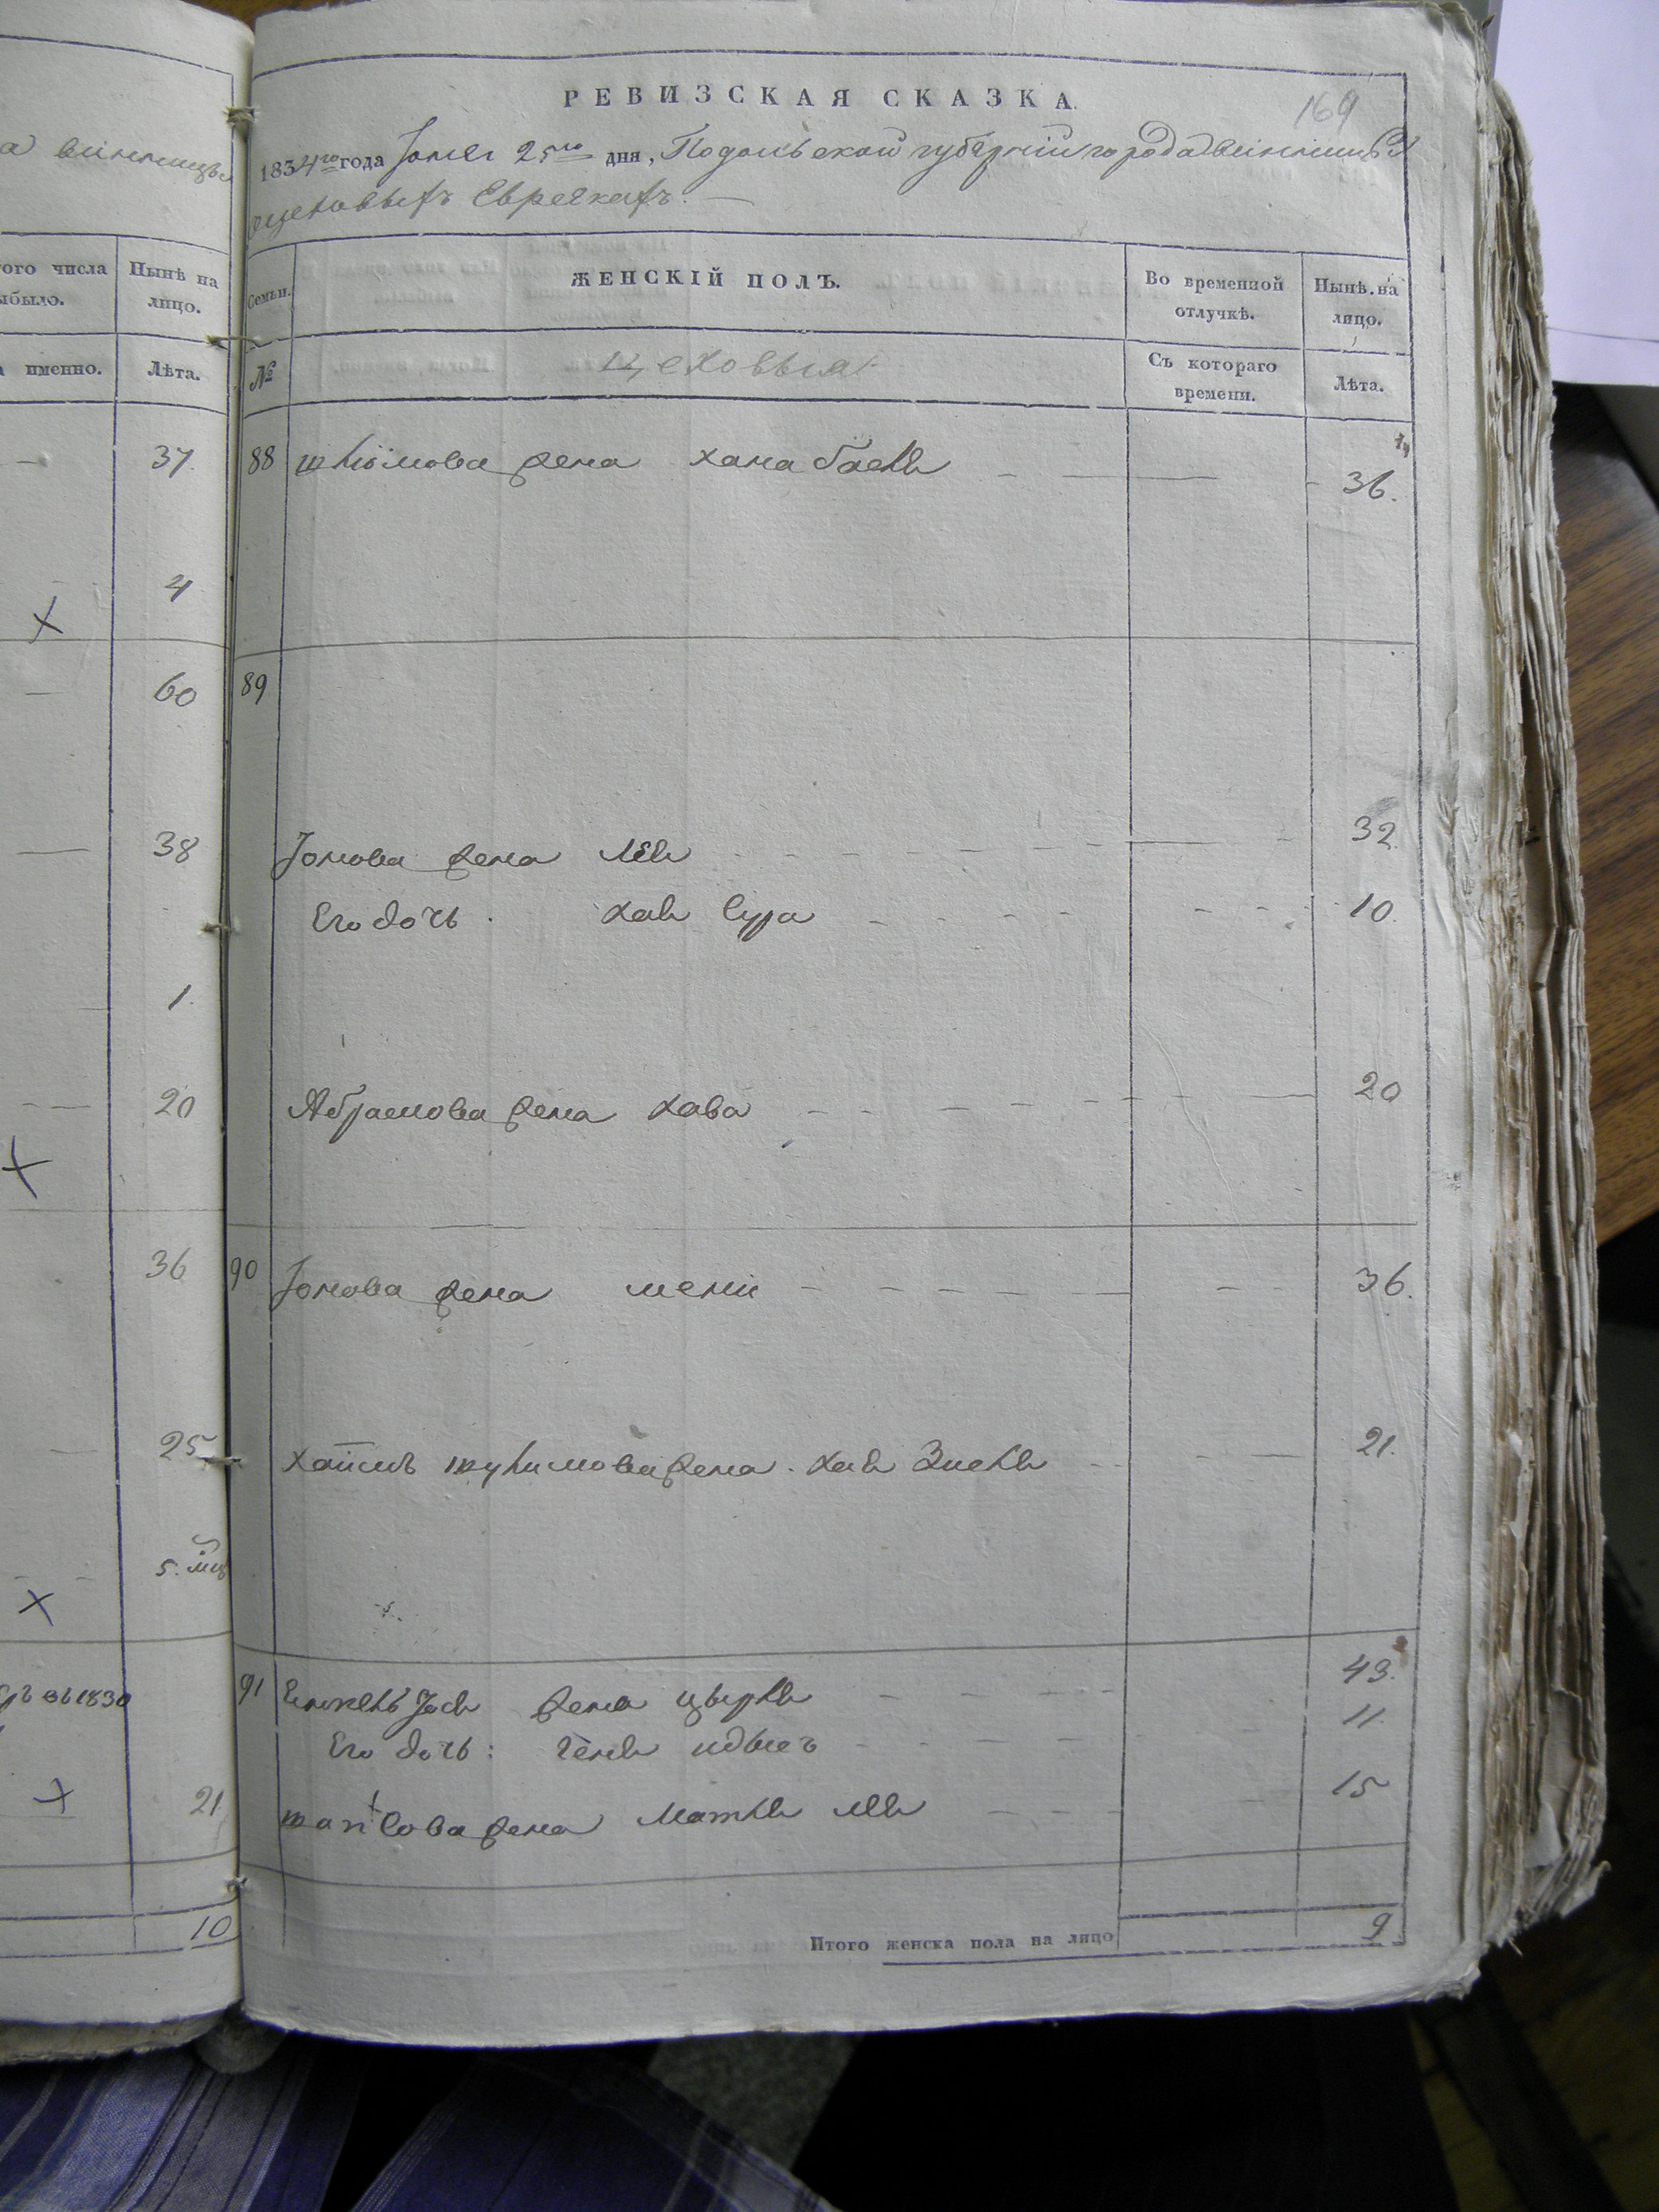 а винницы
ого числа
ыбыло.
Нынѣ на
лицо.
а именно.
Лѣта.
37.
4
60
38
1.
20
36
25
5. мц
въ 1830
21
10
РЕВИЗСКАЯ СКАЗКА.
169
1834го года Іюня 25го дня, Подольской губерніи города винницы о
цеховыхъ Евреяхъ. —
Семьи.
ЖЕНСКІЙ ПОЛЪ.
Во временной
отлучкѣ.
Нынѣ на
лицо.
№
Цеховыя
Съ котораго
времени.
Лѣта.
88 шлїомова жена хана баеля 36.
89
Іонова жена лея 32.
Его дочь хая Сура 10.
Абрамова жена хава 20
90 Іонова жена мени 36.
хаимъ жена. хая 21.
91 жена цырля 43.
Его дочь: идысъ 11.
жена лея 15
Итого женска пола на лицо 9